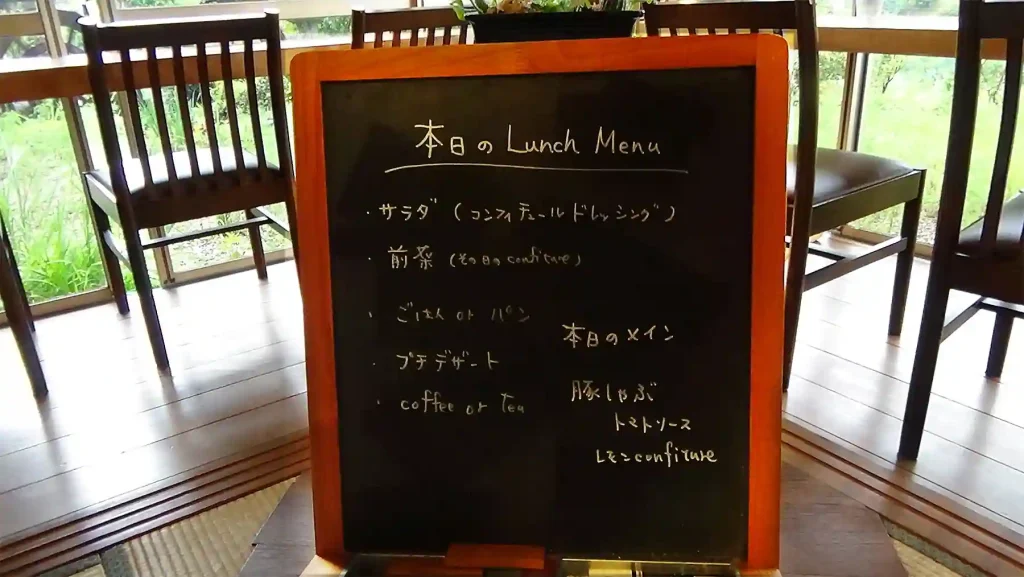 本日の Lunch Menu
・サラダ (コンフィチュールドレッシング)
・前菜 (その日の confiture)
・ごはん or パン
・プチデザート
・coffee or Tea
本日のメイン
豚しゃぶ
トマトソース
レモンconfiture